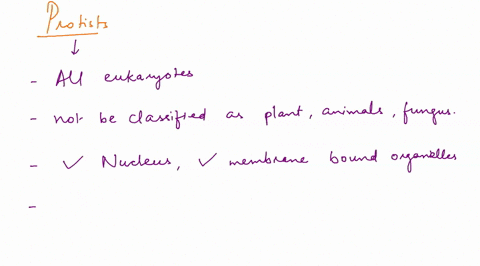 Protists
↓
- All eukaryotes
- not be classified as plant, animals, fungus.
- ✓ Nucleus, ✓ membrane bound organelles
-